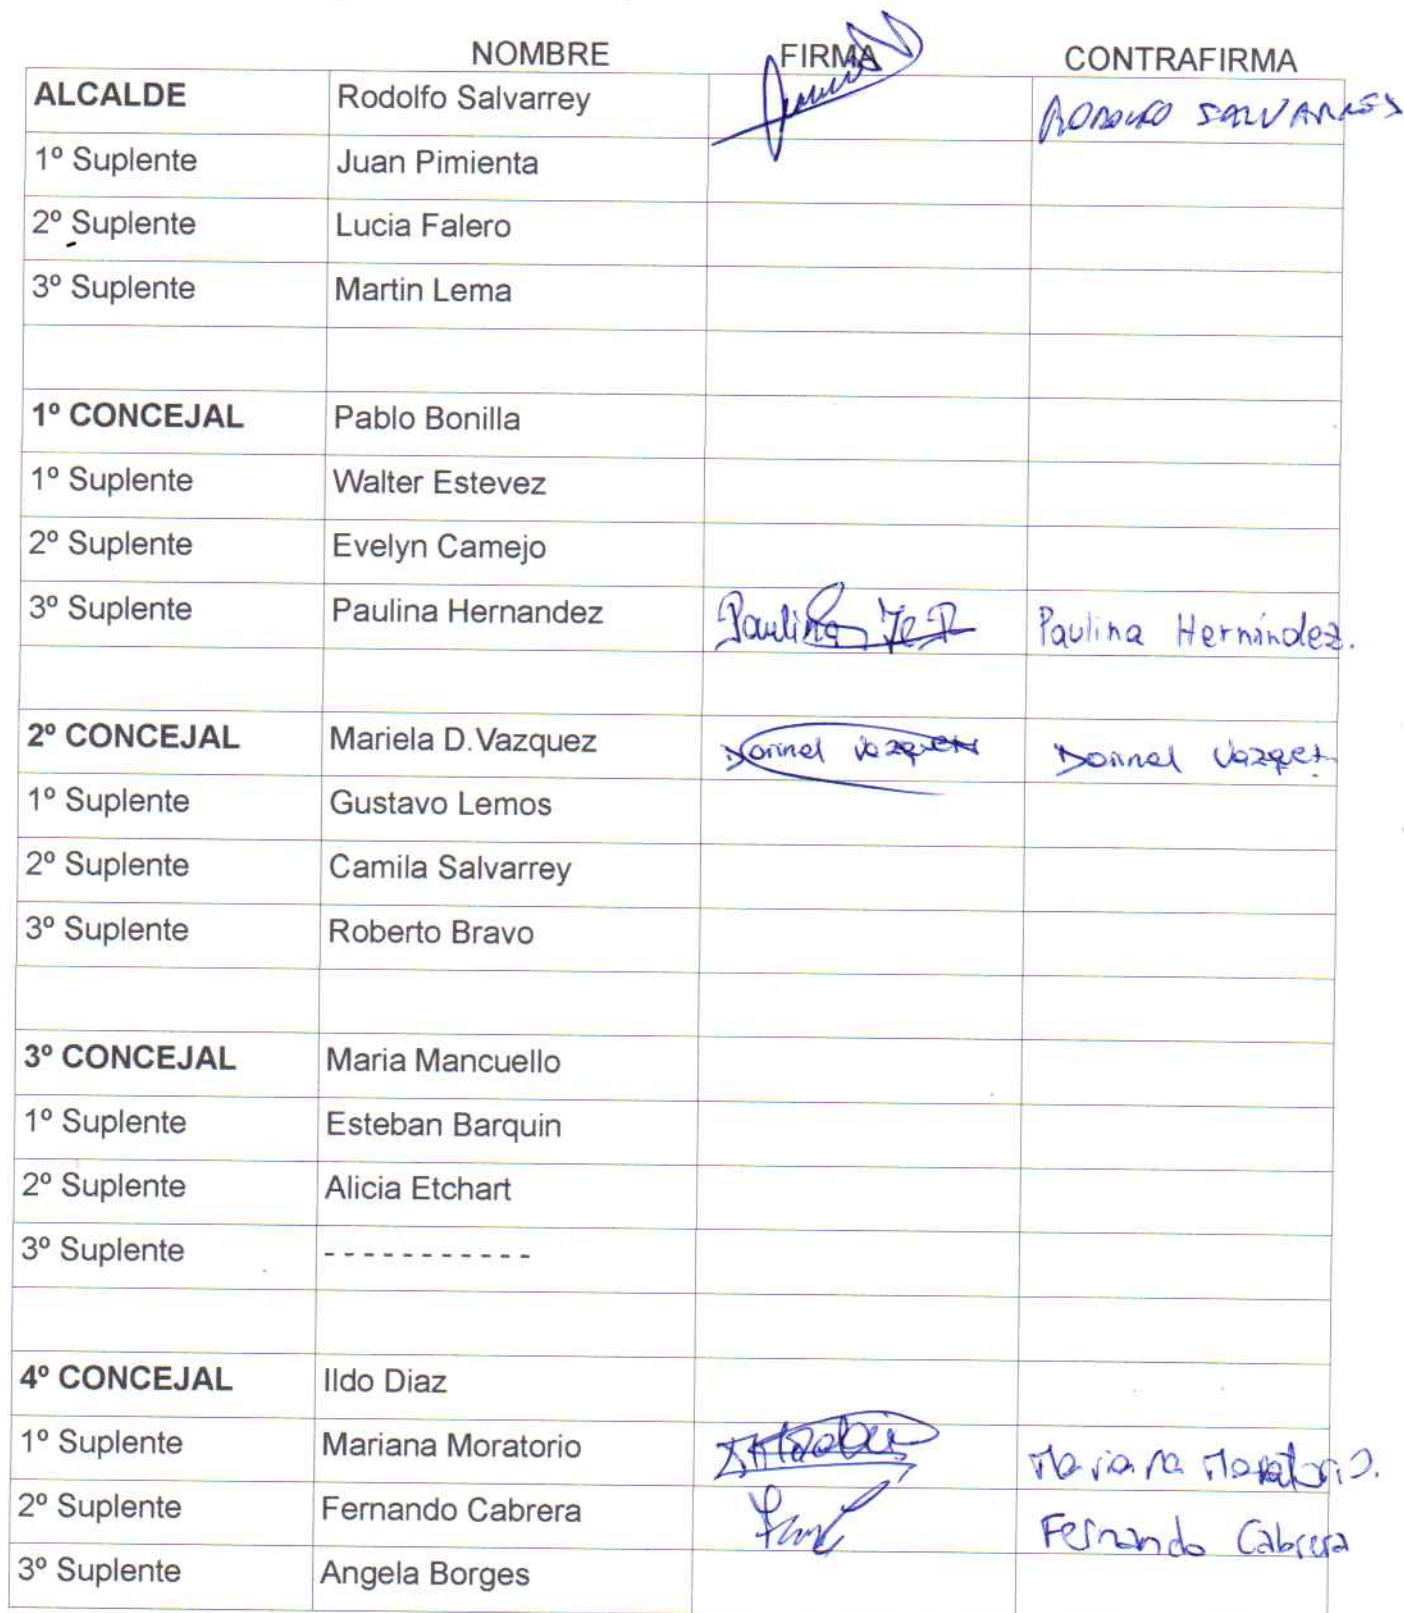 NOMBRE FIRMA CONTRAFIRMA
ALCALDE Rodolfo Salvarrey RODOLFO SALVARREY
1º Suplente Juan Pimienta
2º Suplente Lucia Falero
3º Suplente Martin Lema
1º CONCEJAL Pablo Bonilla
1º Suplente Walter Estevez
2º Suplente Evelyn Camejo
3º Suplente Paulina Hernandez Paulina Paulina Hernández.
2º CONCEJAL Mariela D.Vazquez Dorinel Vazquez Dorinel Vazquez
1º Suplente Gustavo Lemos
2º Suplente Camila Salvarrey
3º Suplente Roberto Bravo
3º CONCEJAL Maria Mancuello
1º Suplente Esteban Barquin
2º Suplente Alicia Etchart
3º Suplente - - - - - - - - - - -
4º CONCEJAL Ildo Diaz
1º Suplente Mariana Moratorio Mariana Moratorio.
2º Suplente Fernando Cabrera Fernando Cabrera
3º Suplente Angela Borges